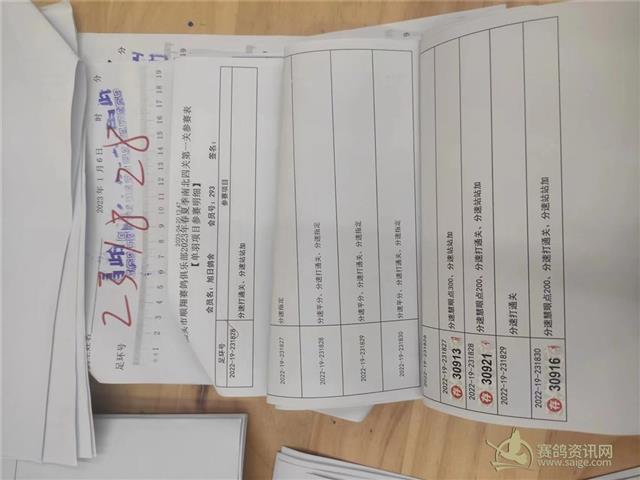 2023年 1月 6日 时 分
足环号
231828
1 2 3 4 5 6 7 8 9 10 11 12 13 14 15 16 17 18 19
头市顺翔赛鸽俱乐部2023年春夏季南北四关第一关参赛表
【单羽项目参赛明细】
会员名：旭日鸽舍 会员号：293 签名：
足环号 参赛项目
2022-19-231826 分速打通关、分速站站加
2022-19-231827 分速指定
2022-19-231828 分速平分、分速打通关、分速指定
2022-19-231829 分速打通关、分速指定
2022-19-231830 分速平分、分速打通关、分速指定
2022-19-231827 分速慧眼点300、分速站站加
存 30913
2022-19-231828 分速慧眼点200、分速打通关、分速站站加
存 30921
2022-19-231829 分速打通关
2022-19-231830 分速慧眼点200、分速打通关、分速站站加
存 30916
赛鸽资讯网
www.saige.com